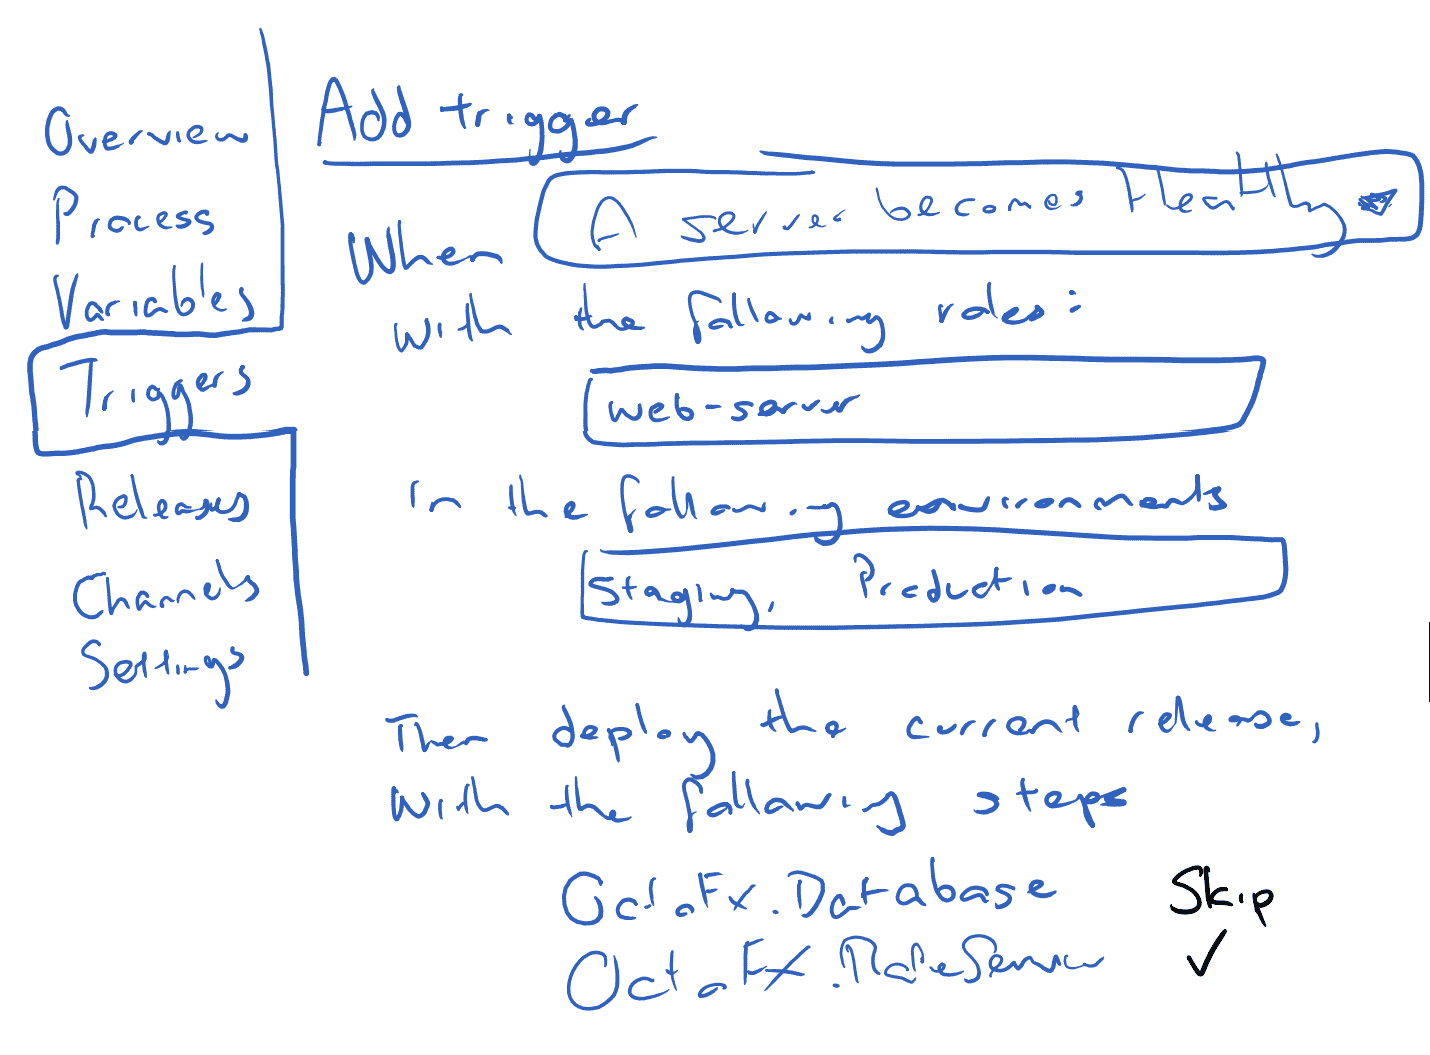 Overview
Process
Variables
Triggers
Releases
Channels
Settings
Add trigger
When A server becomes Healthy
with the following roles:
web-server
in the following environments
Staging, Production
Then deploy the current release,
with the following steps
OctoFX.Database Skip
OctoFX.RateService ✓